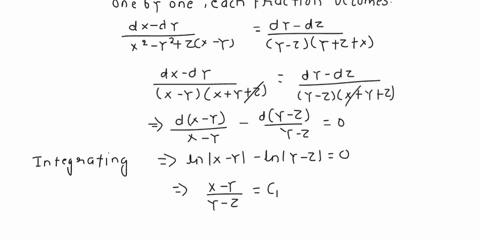 one by one, each fraction becomes:
dx-dy / x²-y²+z(x-y) = dy-dz / (y-z)(y+z+x)
dx-dy / (x-y)(x+y+z) = dy-dz / (y-z)(x+y+z)
⇒ d(x-y) / x-y - d(y-z) / y-z = 0
Integrating ⇒ ln|x-y| - ln|y-z| = 0
⇒ x-y / y-z = C₁